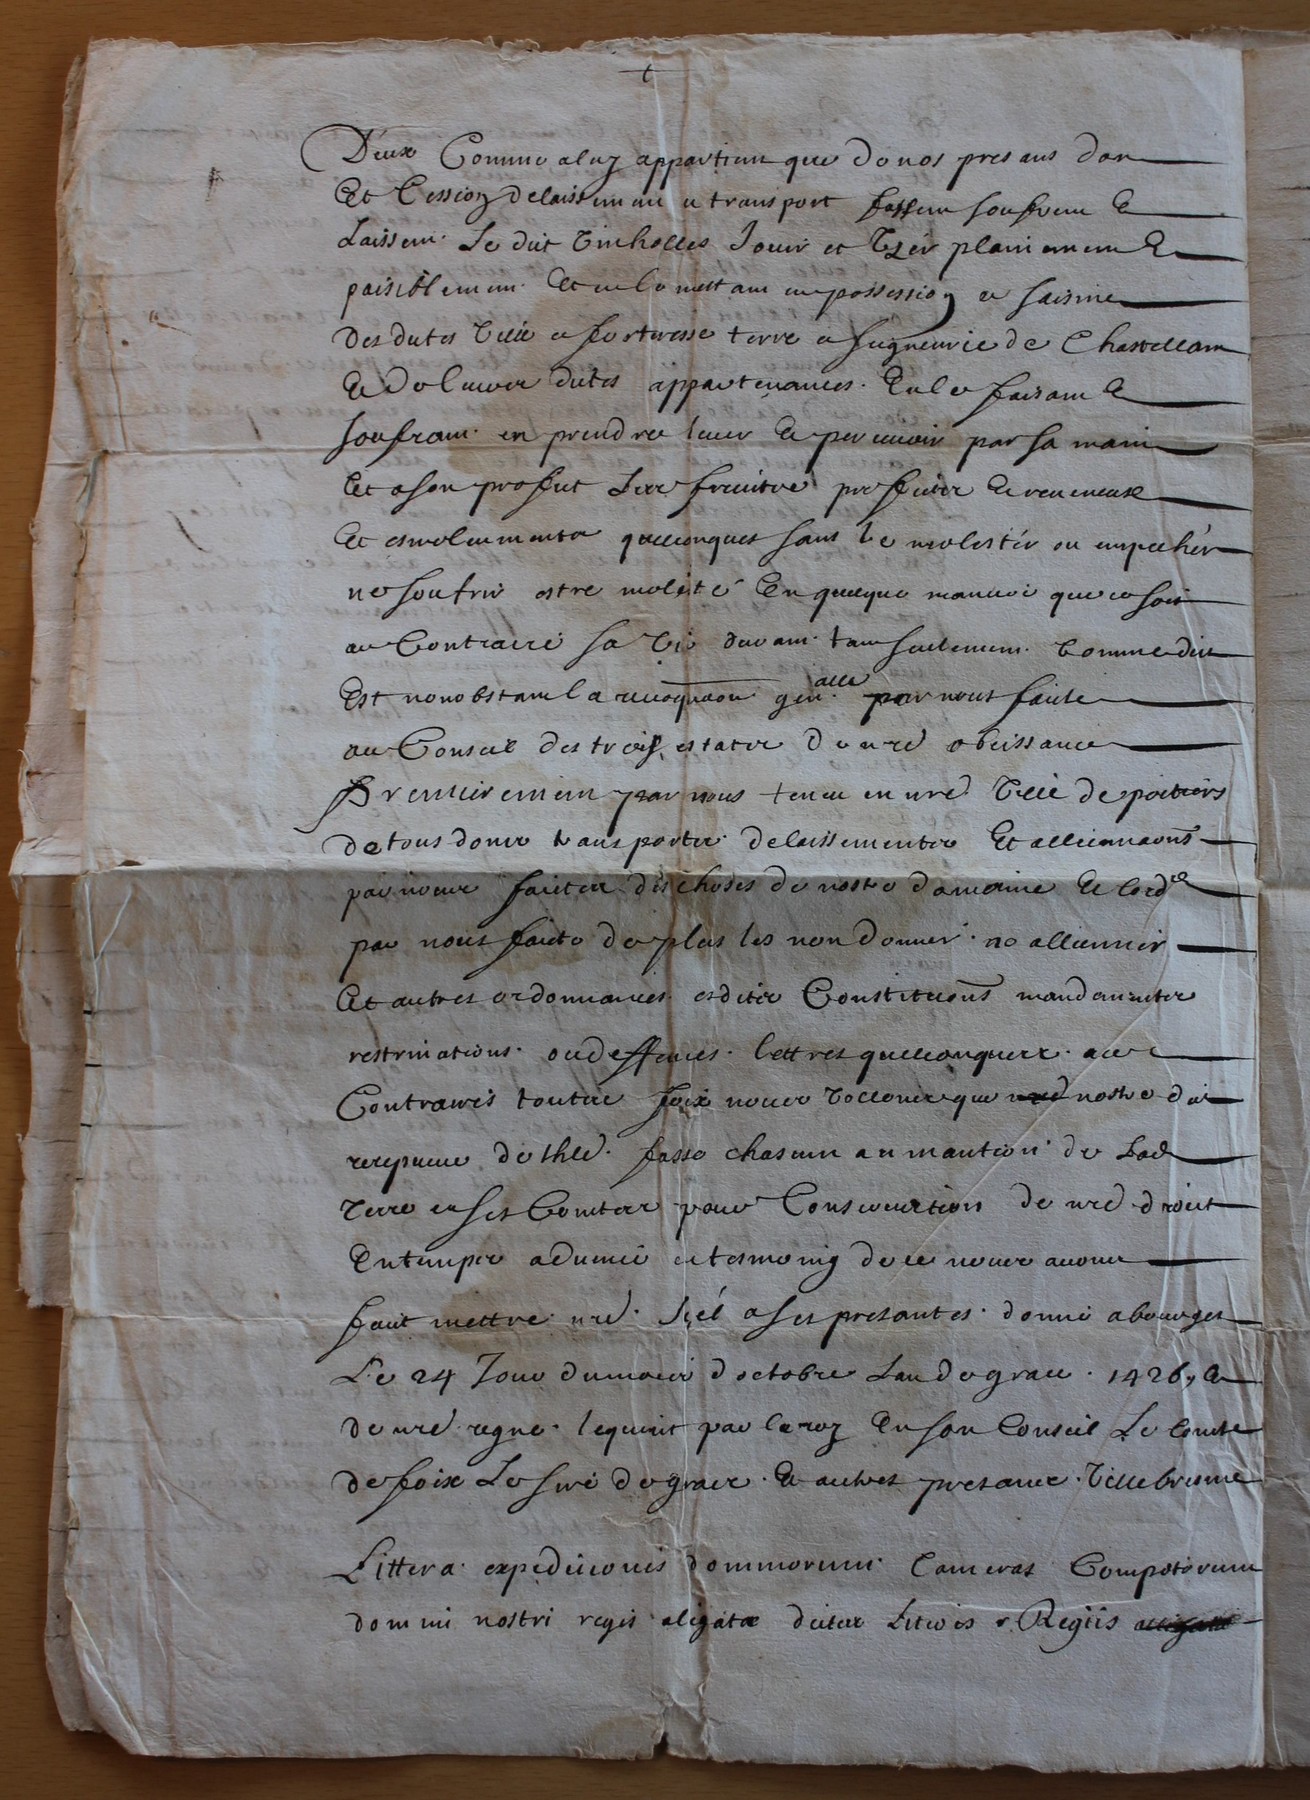 Deux Comme aluy appartient que de nos presans don
Et Cession delaissement et transport fassent soufrent et
Laissent Le dit Vinholles Jouir et Uzér plainement Et
paisiblement Et en le mettant en possession et saisine
des dites ville et forteresse terre et seigneurie de Chastellam
Et de leurs dites appartenances. En les faisant Et
soufrant en prendre lever Et percevoir par sa main
Et a son profit Les fruits profits Et reveneus
Et esmoluments quelconques sans Le molestér ou empechér
ne soufrir estre molesté En quelque maniere que ce soit
au Contraire sa vie durant tant seulement. Comme dit
Est nonobstant la revoquaon gen.alle par nous faite
au Conseil des trois estats de nre obeissance
Premierement par nous tenu en nre ville de poitiers
de tous dons transports delaissements Et allienaons
par nous faites des choses de nostre domaine Et lord.ce
par nous faite de plus les non donner ne alliennér
Et autres ordonnances editz Constituons mandements
restrinations ou deffences. lettres quelconques a ce
Contraires toutes foix nous vollons que nostre dit
fasse chascun an mention de Lad
terre en ses Comtes pour Conservation de nre droict
En temps a venir et tesmoing de ce nous avons
fait mettre nre Séel a ses presantes donné a bourges
Le 24 Jour du mois d octobre Lan de grace. 1426, Et
de nre regne le quint par le roy En son Conseil Le Comte
de foix Le sire de grave. Et autres presans. Villebresme
Littera expedicionis dominorum Cameras Compotorum
domini nostri regis aligata dictis Literis Regiis